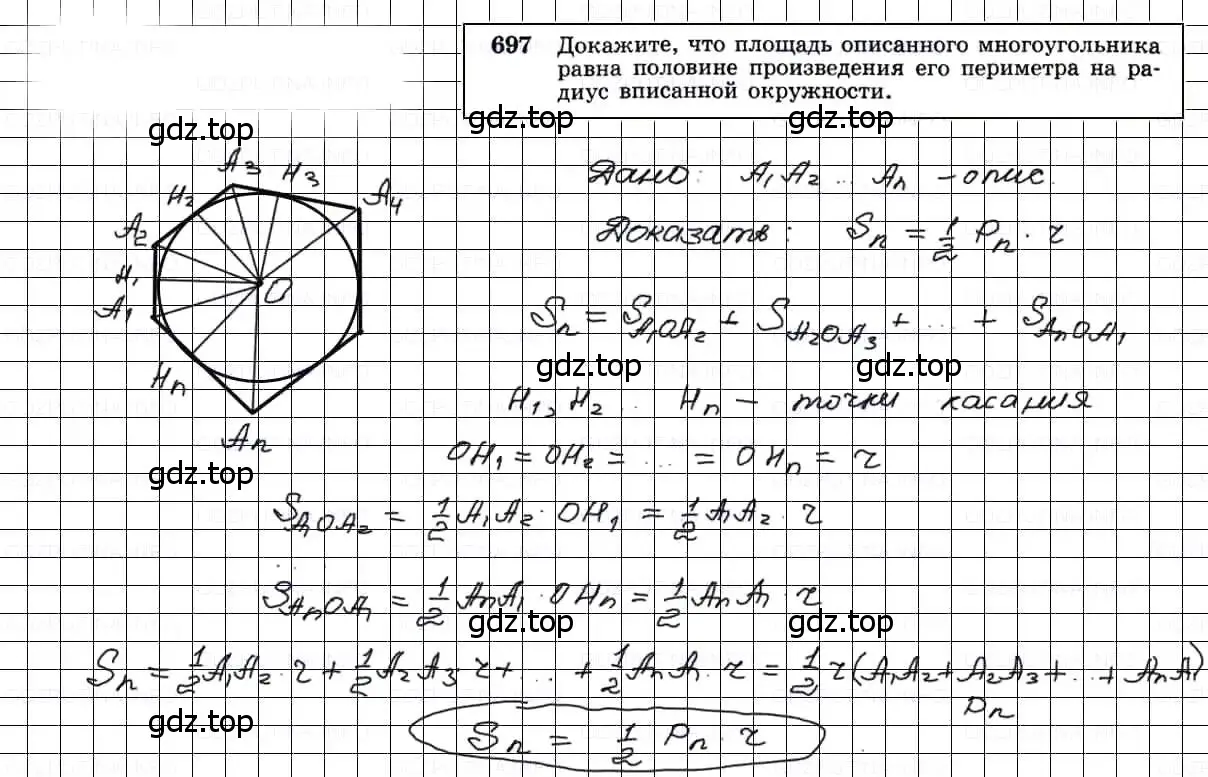 697 Докажите, что площадь описанного многоугольника
равна половине произведения его периметра на ра-
диус вписанной окружности.
gdz.top gdz.top gdz.top
A₃ H₃
H₂ A₄
A₂
H₁ O
A₁
Hₙ
Aₙ
Дано: A₁A₂ ... Aₙ – опис.
Доказать: Sₙ = 1/2 Pₙ · r
Sₙ = S_A₁OA₂ + S_A₂OA₃ + ... + S_AₙOA₁
gdz.top gdz.top
H₁, H₂ .. Hₙ – точки касания
OH₁ = OH₂ = ... = OHₙ = r
gdz.top
S_A₁OA₂ = 1/2 A₁A₂ · OH₁ = 1/2 A₁A₂ · r
S_AₙOA₁ = 1/2 AₙA₁ · OHₙ = 1/2 AₙA₁ · r
gdz.top gdz.top
Sₙ = 1/2 A₁A₂ · r + 1/2 A₂A₃ · r + ... + 1/2 AₙA₁ · r = 1/2 r (A₁A₂ + A₂A₃ + ... + AₙA₁)
Pₙ
gdz.top gdz.top gdz.top
Sₙ = 1/2 Pₙ · r